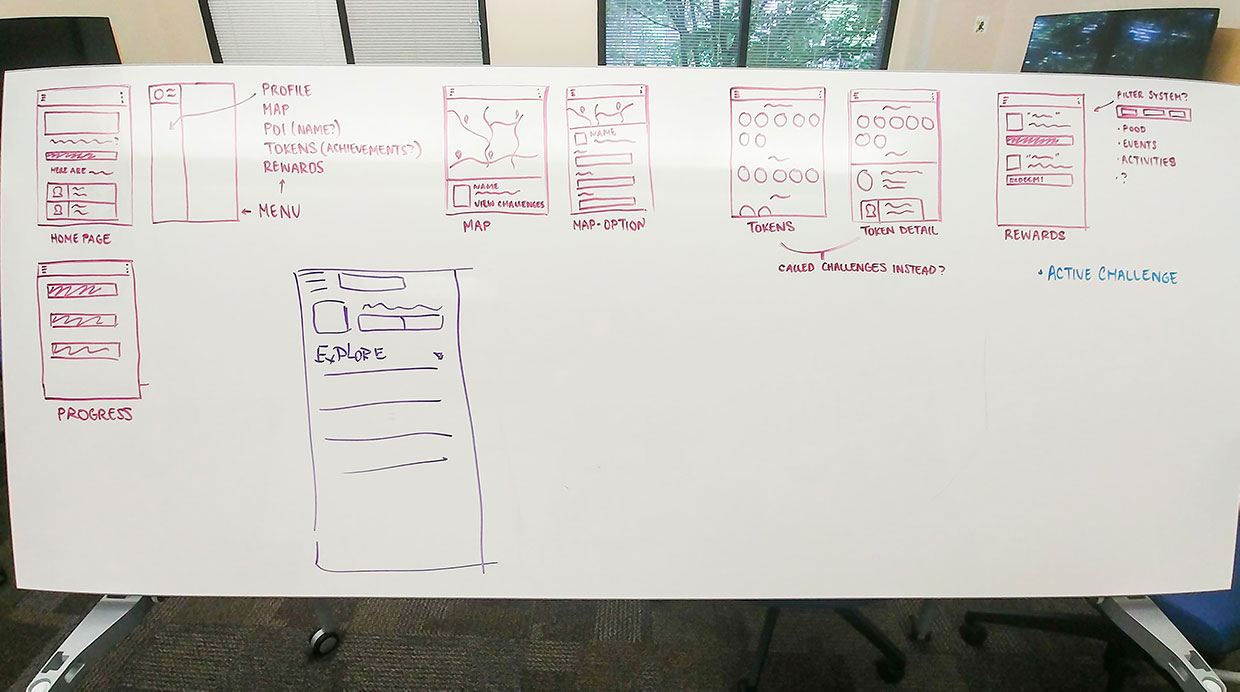 HERE ARE
HOME PAGE
PROFILE
MAP
POI (NAME?)
TOKENS (ACHIEVEMENTS?)
REWARDS
MENU
NAME
VIEW CHALLENGES
MAP
NAME
MAP-OPTION
TOKENS
TOKEN DETAIL
CALLED CHALLENGES INSTEAD?
REDEEM!
REWARDS
FILTER SYSTEM?
· FOOD
· EVENTS
· ACTIVITIES
· ?
· ACTIVE CHALLENGE
PROGRESS
EXPLORE